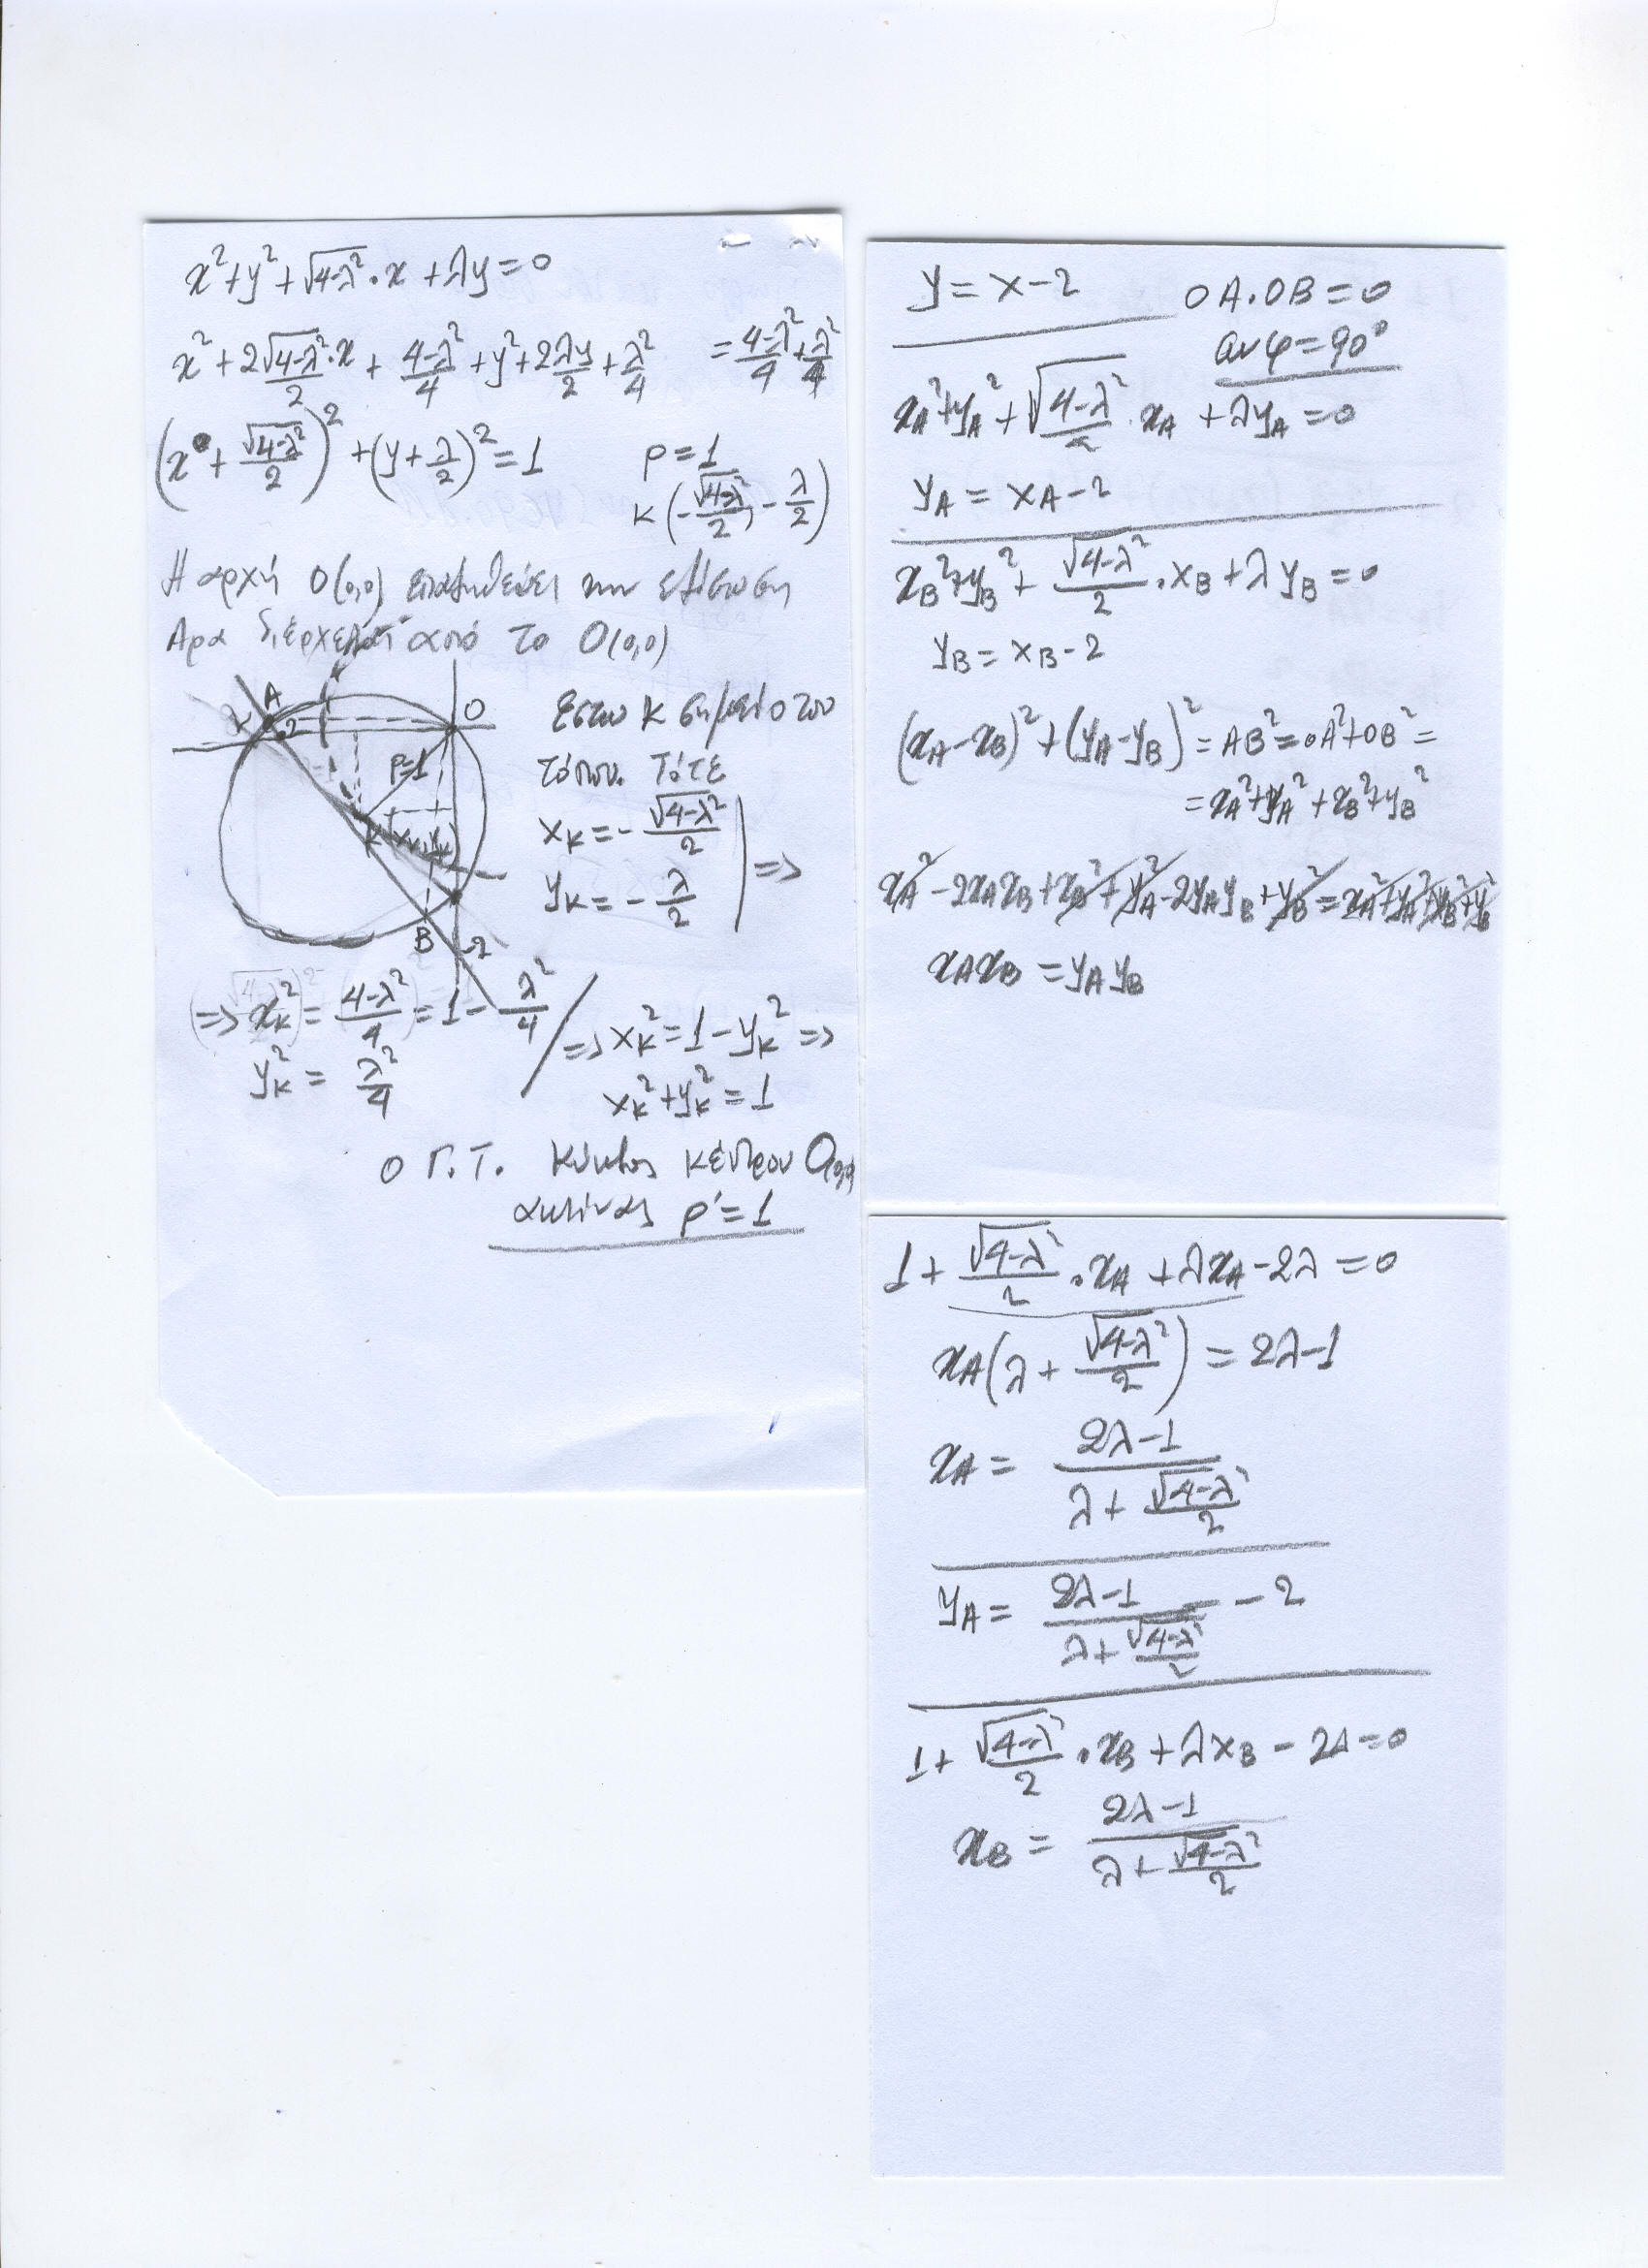 x²+y²+√(4-λ²)·x+λy=0
x²+2√(4-λ²)/2·x+(4-λ²)/4+y²+2λy/2+λ²/4 =(4-λ²)/4+λ²/4
(x+√(4-λ²)/2)²+(y+λ/2)²=1
ρ=1
K(-√(4-λ²)/2,-λ/2)
Η αρχή O(0,0) επαληθεύει την εξίσωση
Άρα διέρχεται από το O(0,0)
A
O
-2
ρ=1
K(xκ,yκ)
B
-2
Έστω K σημείο του
τόπου. Τότε
xκ=-√(4-λ²)/2
yκ=-λ/2
=>
=> xκ²=(4-λ²)/4=1-λ²/4
yκ²=λ²/4
=> xκ²=1-yκ² =>
xκ²+yκ²=1
Ο Γ.Τ. κύκλος κέντρου O(0,0)
ακτίνας ρ'=1
y=x-2
OA·OB=0
αν φ=90°
xA²+yA²+√(4-λ²)/2·xA+λyA=0
yA=xA-2
xB²+yB²+√(4-λ²)/2·xB+λyB=0
yB=xB-2
(xA-xB)²+(yA-yB)²=AB²=OA²+OB²=
=xA²+yA²+xB²+yB²
xA²-2xAxB+xB²+yA²-2yAyB+yB²=xA²+yA²+xB²+yB²
xAxB=yAyB
1+√(4-λ²)/2·xA+λxA-2λ=0
xA(λ+√(4-λ²)/2)=2λ-1
xA=(2λ-1)/(λ+√(4-λ²)/2)
yA=(2λ-1)/(λ+√(4-λ²)/2)-2
1+√(4-λ²)/2·xB+λxB-2λ=0
xB=(2λ-1)/(λ+√(4-λ²)/2)